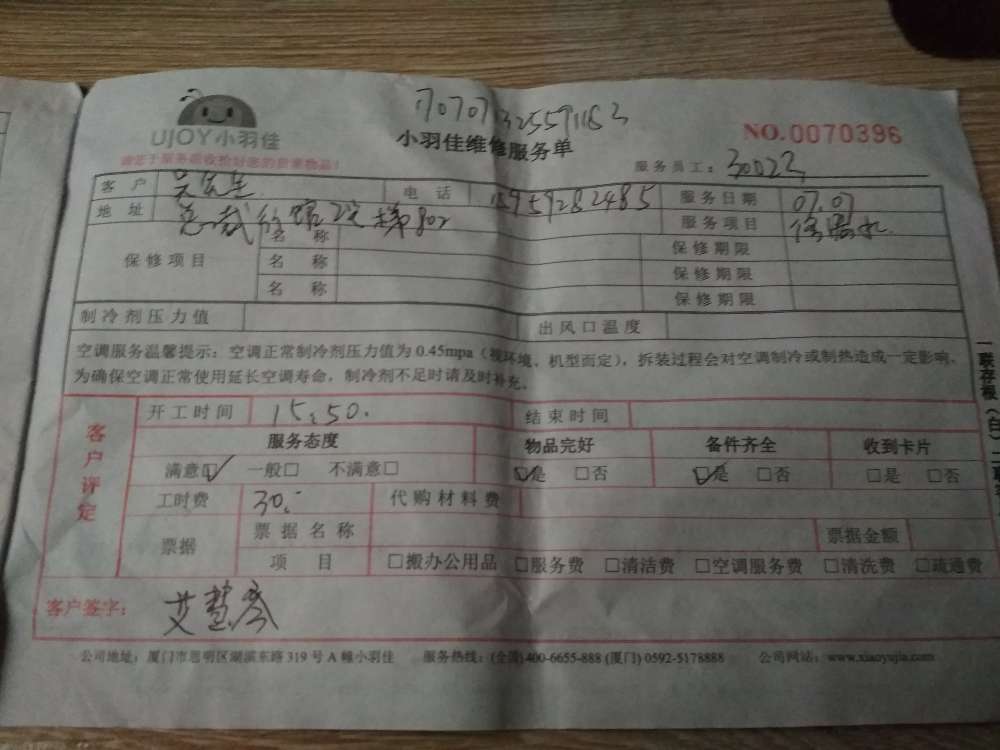 UJOY小羽佳
1707071325591163
小羽佳维修服务单
NO.0070396
请您于服务前收拾好您的贵重物品！
服务员工：30023
客户 吴先生 电话 15959282485 服务日期 07.07
地址 总裁 802 服务项目
保修项目 名称 保修期限
名称 保修期限
名称 保修期限
制冷剂压力值 出风口温度
空调服务温馨提示：空调正常制冷剂压力值为 0.45mpa（视环境、机型而定），拆装过程会对空调制冷或制热造成一定影响，
为确保空调正常使用延长空调寿命，制冷剂不足时请及时补充。
客户评定
开工时间 15:50. 结束时间
服务态度 物品完好 备件齐全 收到卡片
满意☑ 一般□ 不满意□ ☑是 □否 ☑是 □否 □是 □否
工时费 30.- 代购材料费
票据 票据名称 票据金额
项目 □搬办公用品 □服务费 □清洁费 □空调服务费 □清洗费 □疏通费
客户签字： 艾慧琴
公司地址：厦门市思明区湖滨东路 319 号 A 幢小羽佳 服务热线：(全国) 400-6655-888 (厦门) 0592-5178888 公司网站：www.xiaoyujia.com
一联存根（白）